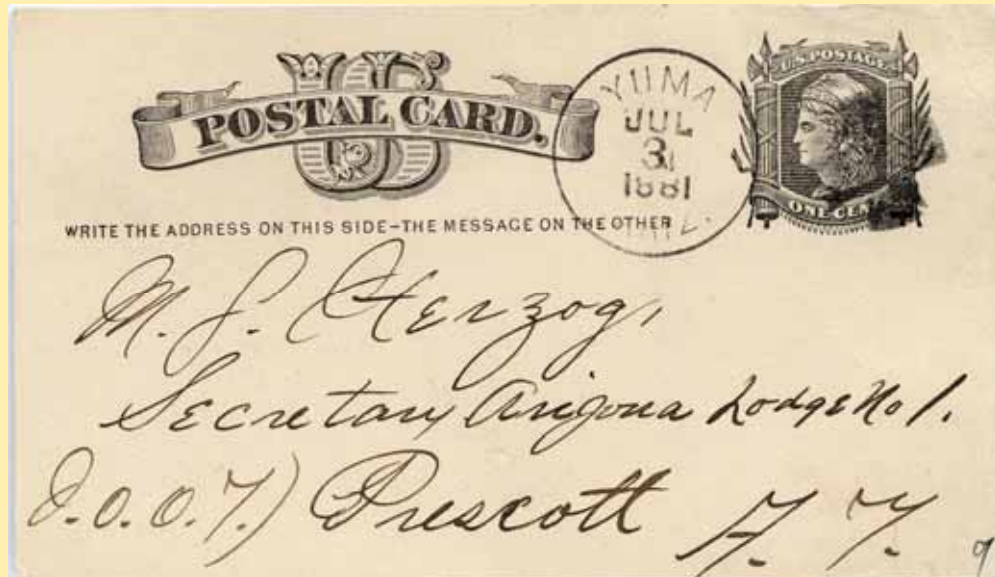 US
POSTAL CARD.
YUMA
JUL
31
1881
U.S. POSTAGE
ONE CENT
WRITE THE ADDRESS ON THIS SIDE–THE MESSAGE ON THE OTHER
M. S. Herzog,
Secretary Arizona Lodge No 1.
I.O.O.F.) Prescott A. T.